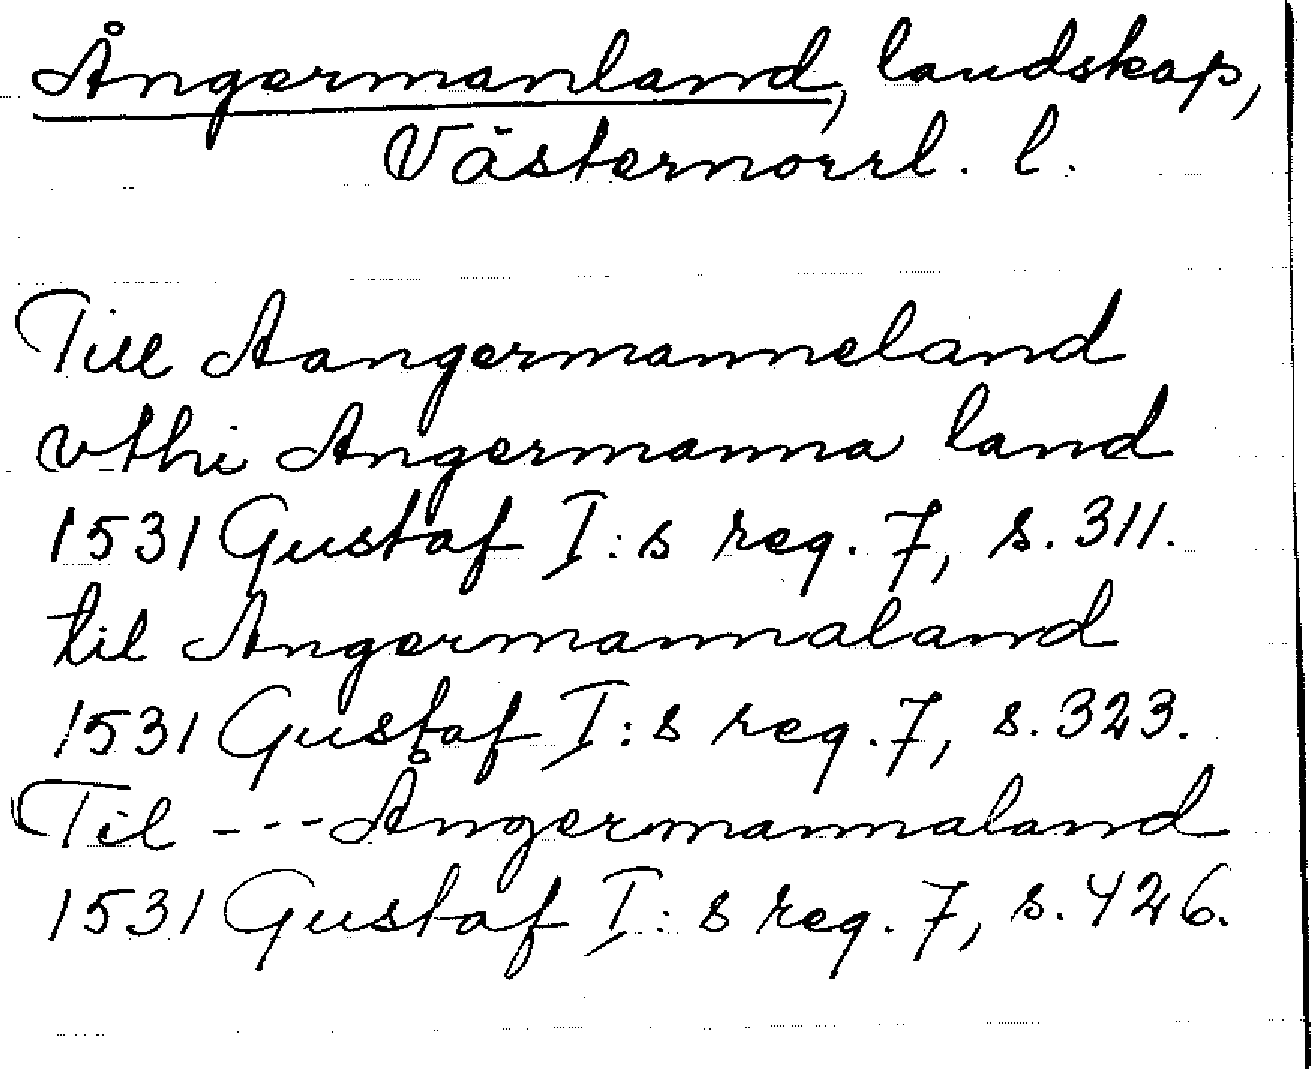 Ångermanland, landskap,
Västernorrl. l.
Till Aangermanneland
vthi Angermanna land
1531 Gustaf I:s reg. 7, s. 311.
til Angermannaland
1531 Gustaf I:s reg. 7, s. 323.
Til --- Ångermannaland
1531 Gustaf I:s reg. 7, s. 426.